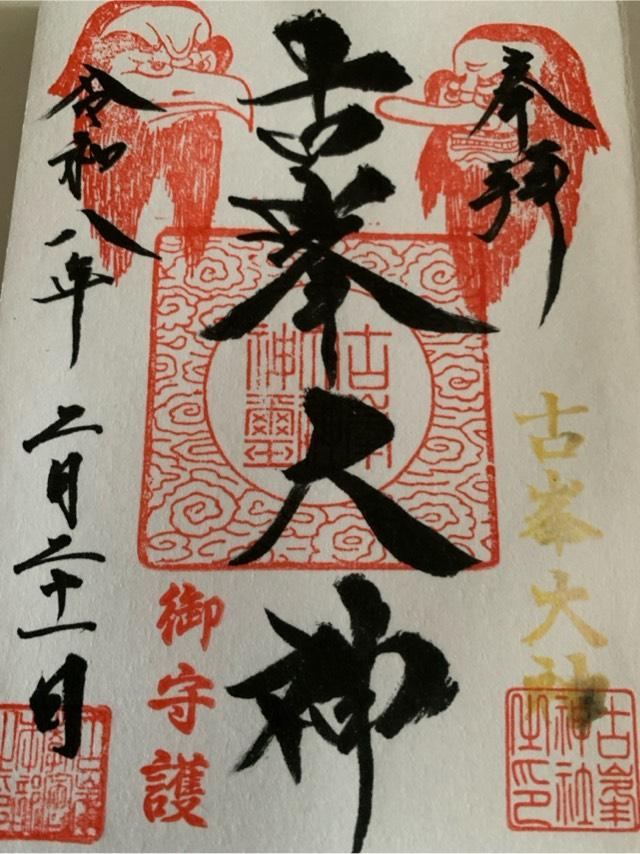 奉拝
古峯大神
古峯大神
古峯神社之印
古峯神璽
御守護
令和八年二月二十一日